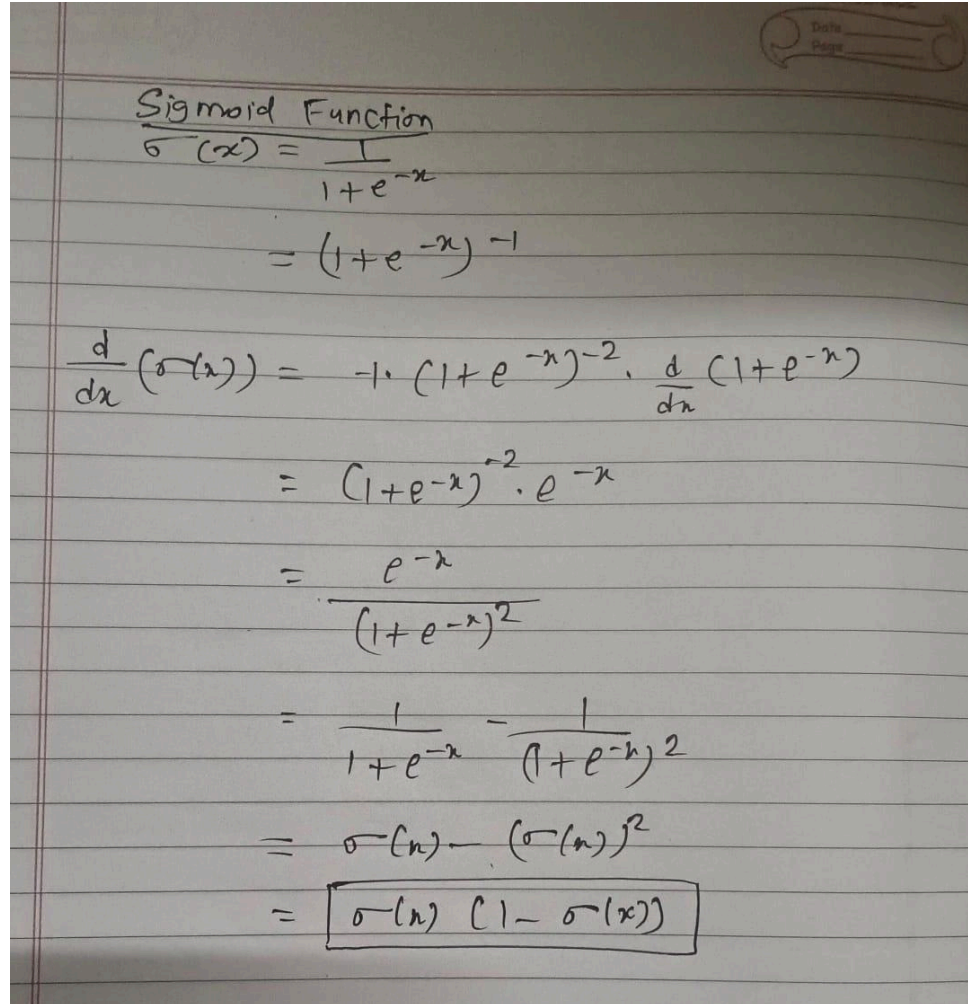 Date
Page
Sigmoid Function
σ(x) = 1/(1+e^-x)
= (1+e^-x)^-1
d/dx (σ(x)) = -1. (1+e^-x)^-2 . d/dx (1+e^-x)
= (1+e^-x)^-2 . e^-x
= e^-x/(1+e^-x)^2
= 1/(1+e^-x) - 1/(1+e^-x)^2
= σ(x) - (σ(x))^2
= σ(x) (1 - σ(x))